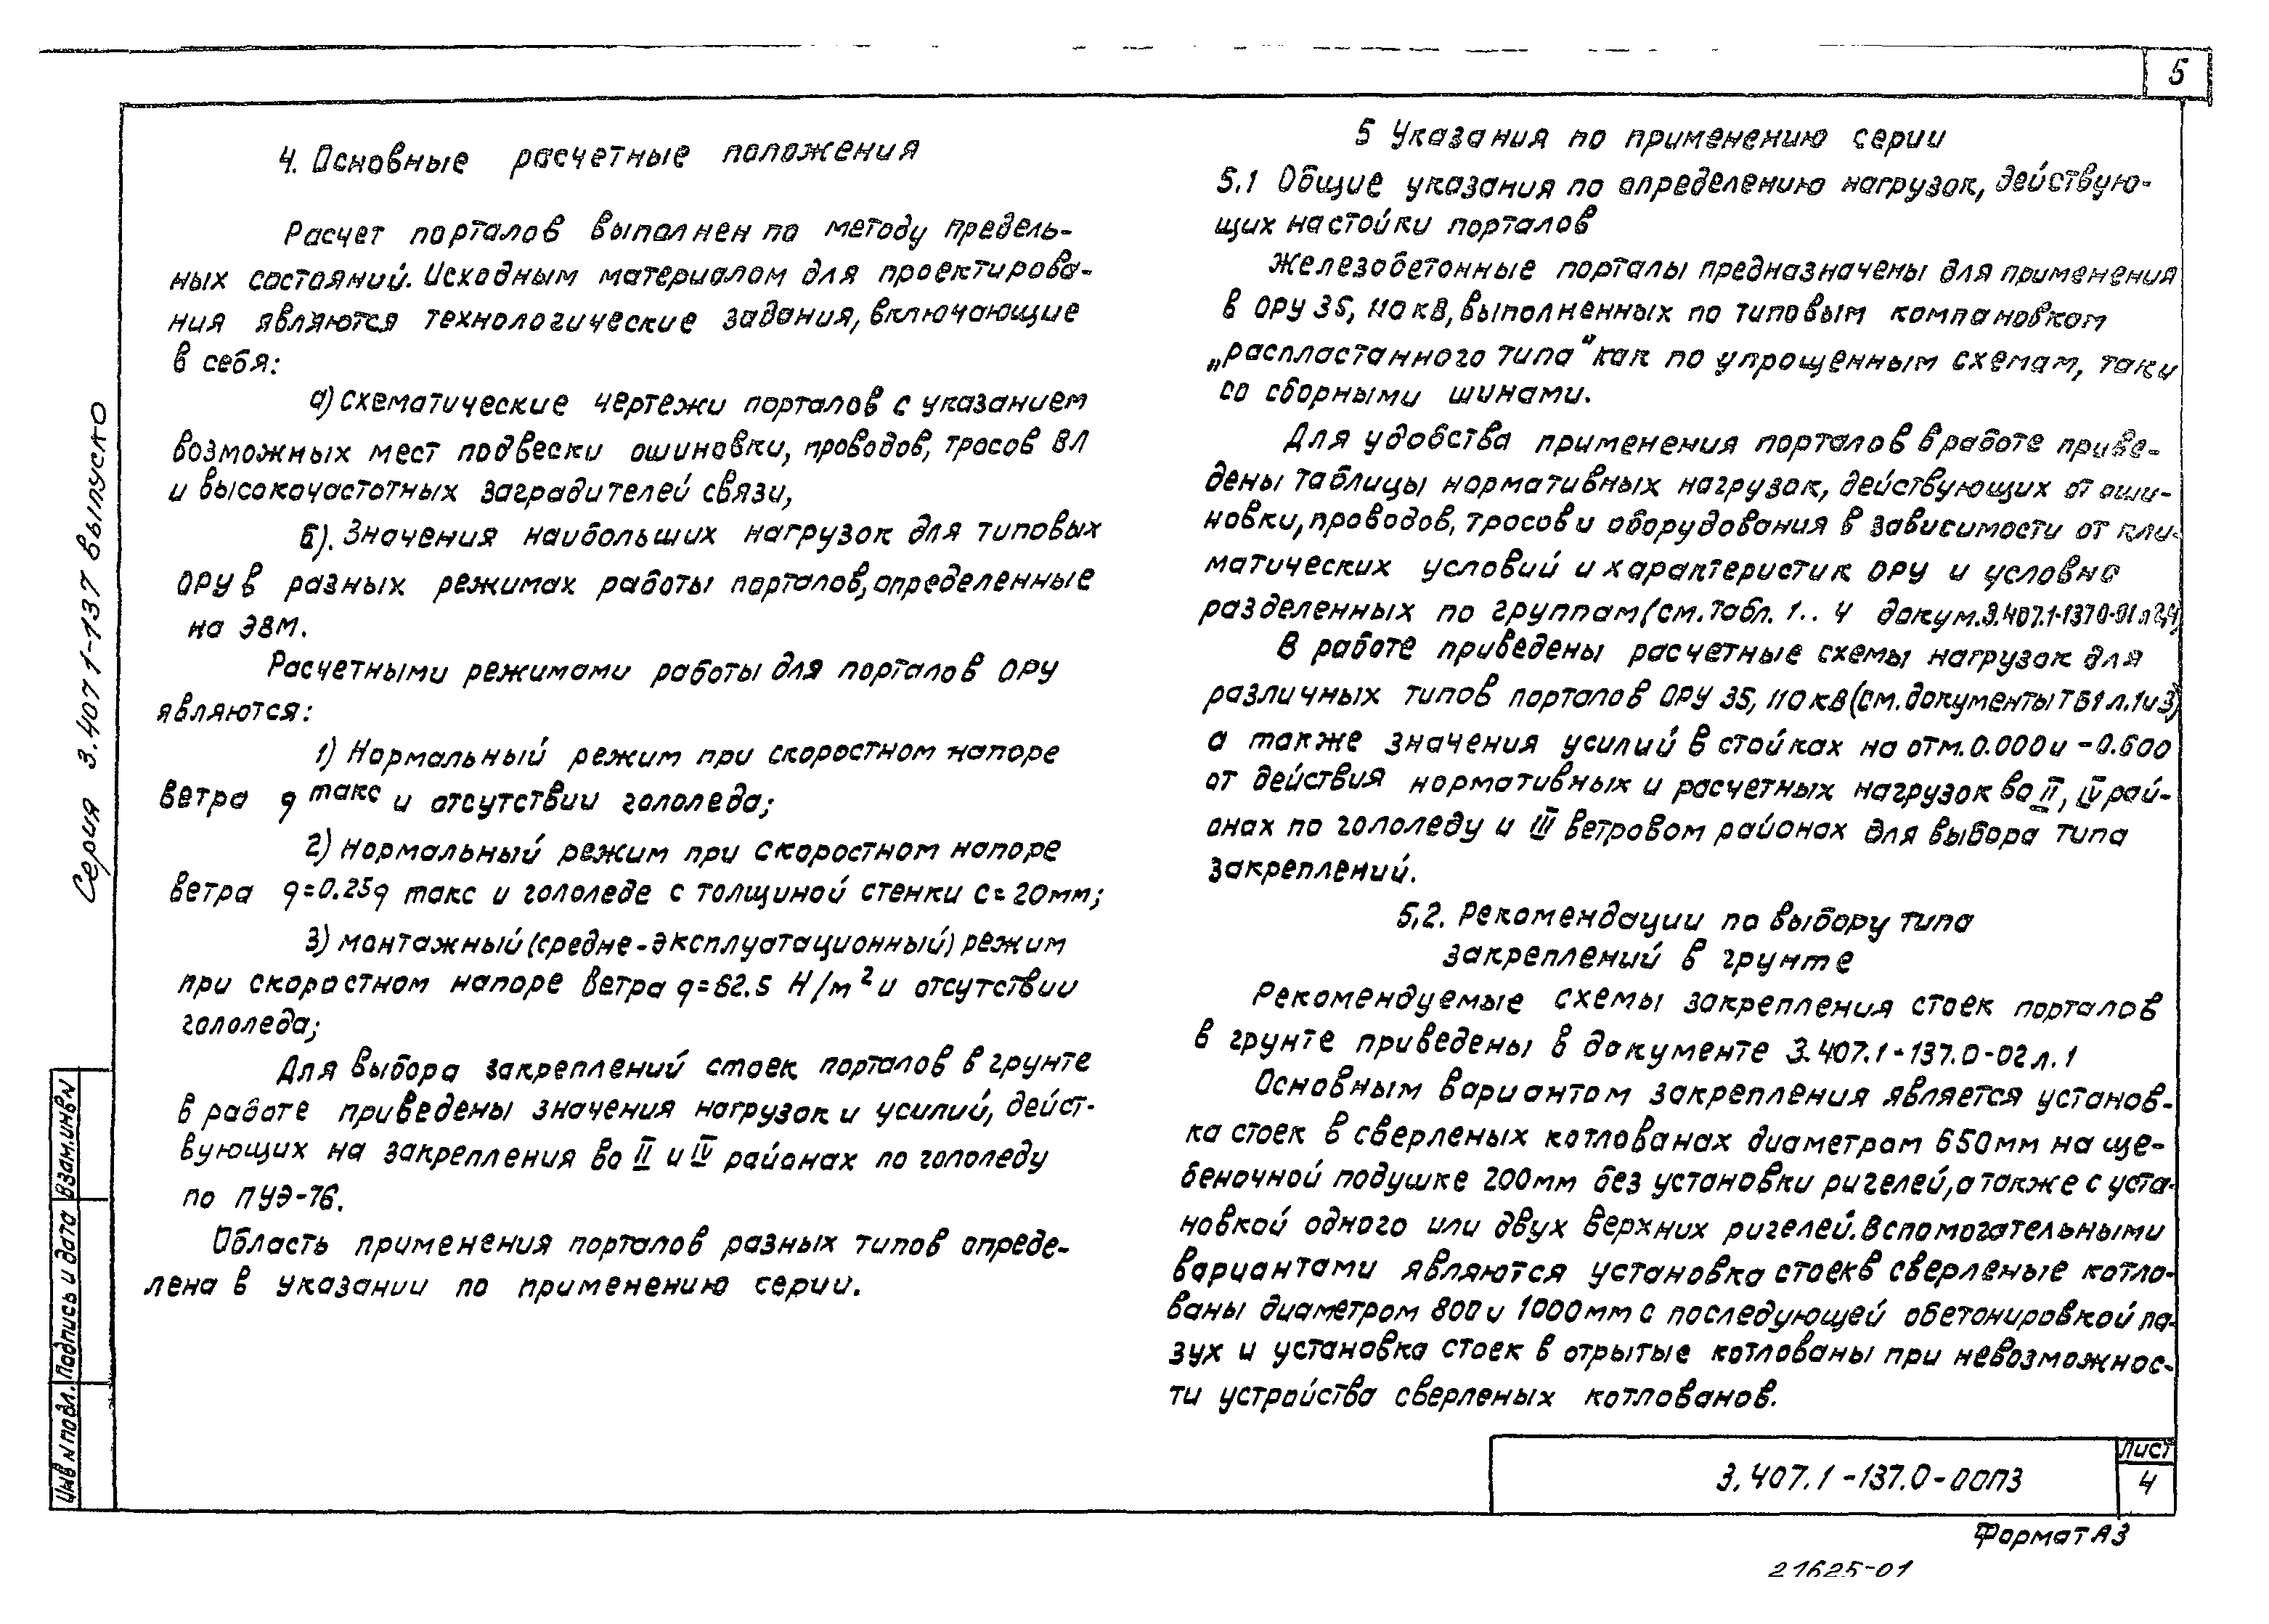 5
4. Основные расчетные положения
Расчет порталов выполнен по методу предель-
ных состояний. Исходным материалом для проектирова-
ния являются технологические задания, включающие
в себя:
а) схематические чертежи порталов с указанием
возможных мест подвески ошиновки, проводов, тросов ВЛ
и высокочастотных заградителей связи,
б). Значения наибольших нагрузок для типовых
ОРУ в разных режимах работы порталов, определенные
на ЭВМ.
Расчетными режимами работы для порталов ОРУ
являются:
1) Нормальный режим при скоростном напоре
ветра q макс и отсутствии гололеда;
2) Нормальный режим при скоростном напоре
ветра q=0.25q макс и гололеде с толщиной стенки с=20мм;
3) монтажный (средне-эксплуатационный) режим
при скоростном напоре ветра q=62.5 Н/м² и отсутствии
гололеда;
Для выбора закреплений стоек порталов в грунте
в работе приведены значения нагрузок и усилий, дейст-
вующих на закрепления во II и IV районах по гололеду
по ПУЭ-76.
Область применения порталов разных типов опреде-
лена в указании по применению серии.
5 Указания по применению серии
5.1 Общие указания по определению нагрузок, действую-
щих на стойки порталов
Железобетонные порталы предназначены для применения
в ОРУ 35, 110 кВ, выполненных по типовым компановкам
„распластанного типа" как по упрощенным схемам, так и
со сборными шинами.
Для удобства применения порталов в работе приве-
дены таблицы нормативных нагрузок, действующих от оши-
новки, проводов, тросов и оборудования в зависимости от кли-
матических условий и характеристик ОРУ и условно
разделенных по группам (см. табл. 1.. 4 докум. 3.407.1-137.0-01 л.2,4)
В работе приведены расчетные схемы нагрузок для
различных типов порталов ОРУ 35, 110 кВ (см. документы ТБ1 л.1 и 3)
а также значения усилий в стойках на отм. 0.000 и -0.600
от действия нормативных и расчетных нагрузок во II, IV рай-
онах по гололеду и III ветровом районах для выбора типа
закреплений.
5,2. Рекомендации по выбору типа
закреплений в грунте
Рекомендуемые схемы закрепления стоек порталов
в грунте приведены в документе 3.407.1-137.0-02 л. 1
Основным вариантом закрепления является установ-
ка стоек в сверленых котлованах диаметром 650мм на ще-
беночной подушке 200мм без установки ригелей, а также с уста-
новкой одного или двух верхних ригелей. Вспомогательными
вариантами являются установка стоек в сверленые котло-
ваны диаметром 800 и 1000мм с последующей обетонировкой па-
зух и установка стоек в отрытые котлованы при невозможнос-
ти устройства сверленых котлованов.
Серия 3.407 1-137 выпуск 0
Инв N подл. Подпись и дата Взам. инв N
3.407.1-137.0-00ПЗ
Лист
4
Формат А3
21625-01